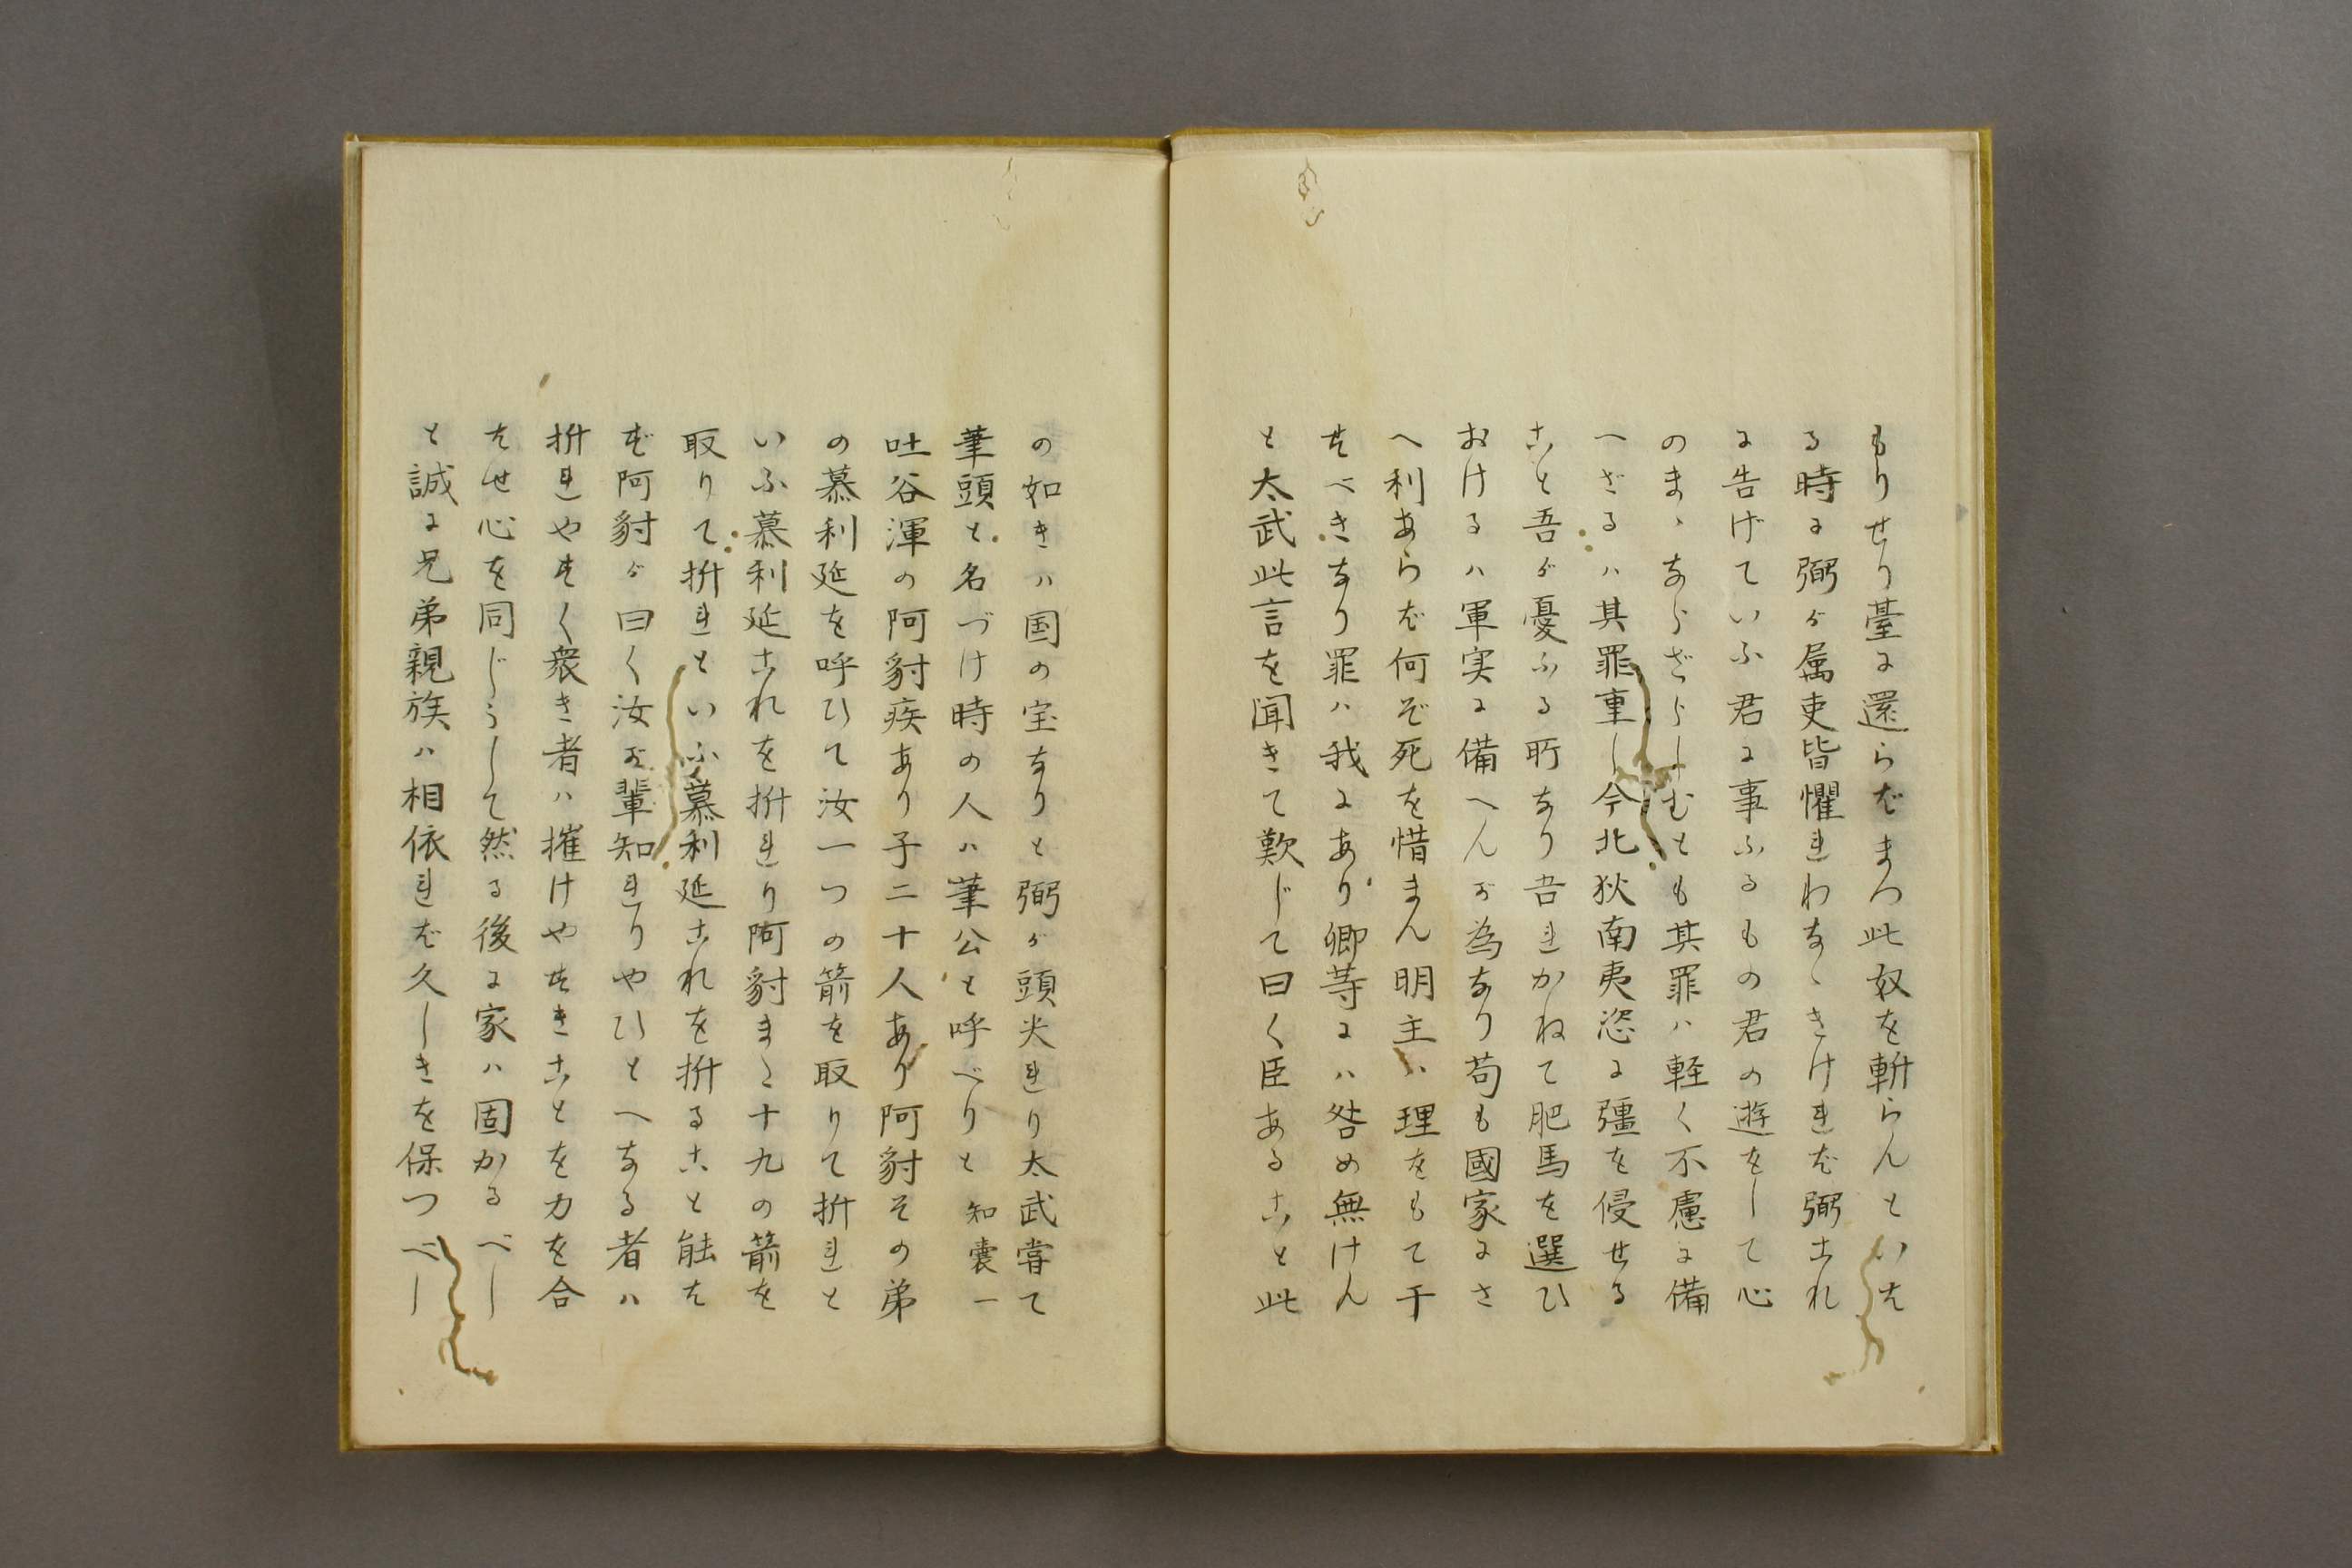 もりせり臺に還らばまつ此奴を斬らんといは
る時に弼が属吏皆懼れわなゝきけれど弼これ
に告げていふ君に事ふるもの君の遊をして心
のまゝならざらしむとも其罪ハ軽く不慮に備
へざるハ其罪重し今北狄南夷恣に彊を侵せる
こと吾が憂ふる所なり吾れかねて肥馬を選ひ
おけるハ軍実に備へんが為なり苟も國家にさ
へ利あらば何ぞ死を惜まん明主ハ理をもて干
すべきなり罪ハ我にあり卿等にハ咎め無けん
と太武此言を聞きて歎じて曰く臣あること此
の如きハ国の宝なりと弼が頭尖れり太武嘗て
筆頭と名づけ時の人ハ筆公と呼べりと 知嚢一
吐谷渾の阿豺疾あり子二十人あり阿豺その弟
の慕利延を呼ひて汝一つの箭を取りて折れと
いふ慕利延これを折れり阿豺また十九の箭を
取りて折れといふ慕利延これを折ること能は
ず阿豺が曰く汝が輩知れりやひとへなる者ハ
折れやすく衆き者ハ摧けやすきことを力を合
はせ心を同じうして然る後に家ハ固かるべし
と誠に兄弟親族ハ相依れば久しきを保つべし